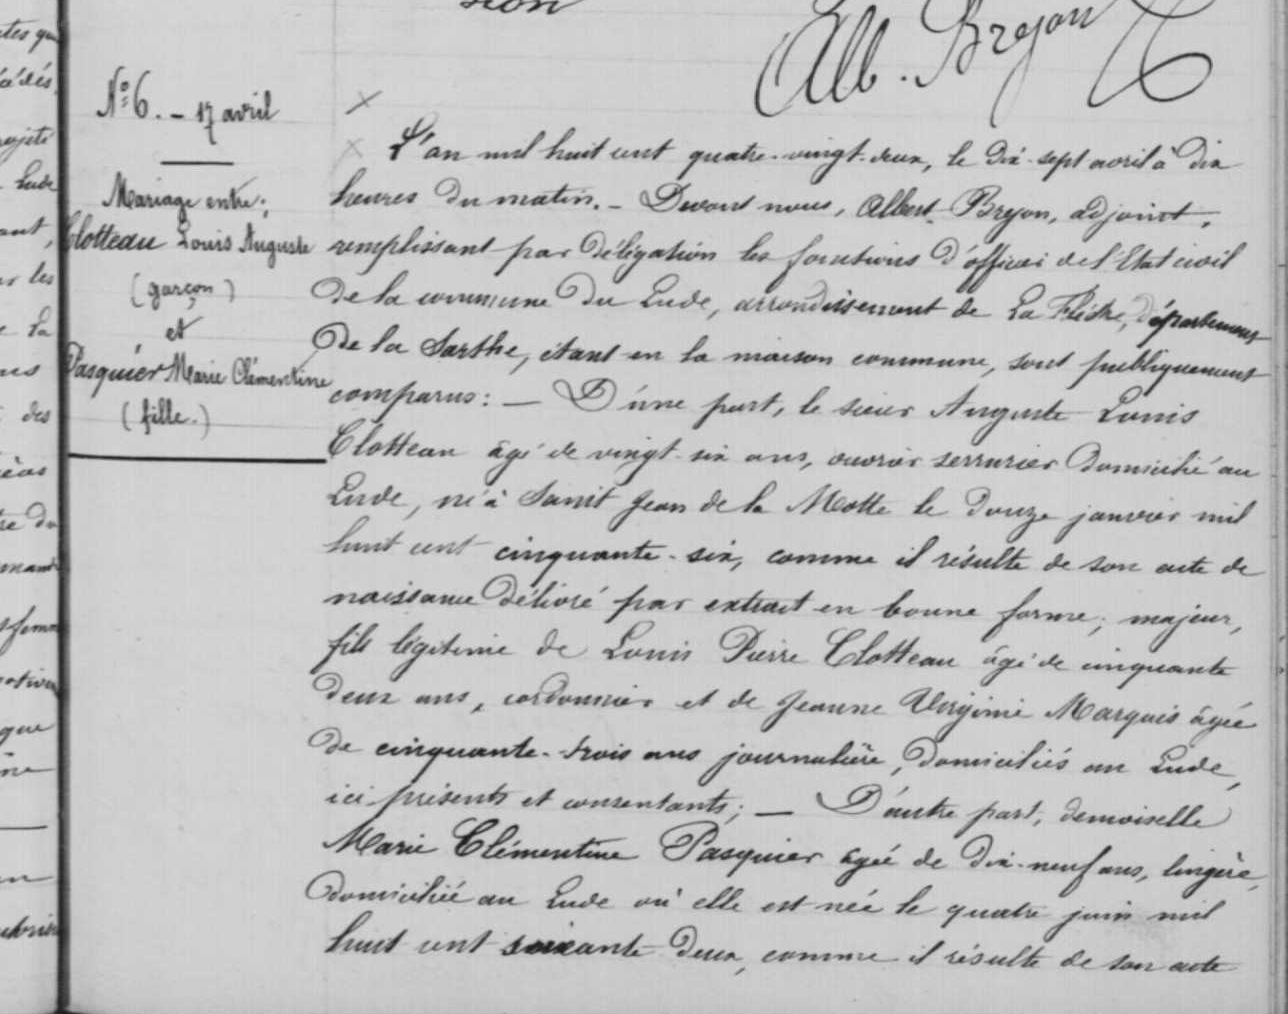 sion
Alb. Breyon
N° 6. - 17 avril
Mariage entre:
Clotteau Louis Auguste
(garçon)
et
Pasquier Marie Clémentine
(fille.)
L'an mil huit cent quatre-vingt-deux, le dix-sept avril à dix
heures du matin. - Devant nous, Albert Breyon, adjoint,
remplissant par délégation les fonctions d'officier de l'Etat civil
de la commune du Lude, arrondissement de La Flèche, département
de la Sarthe, étant en la maison commune, sont publiquement
comparus: - D'une part, le sieur Auguste Louis
Clotteau âgé de vingt-six ans, ouvrier serrurier domicilié au
Lude, né à Saint Jean de la Motte le douze janvier mil
huit cent cinquante-six, comme il résulte de son acte de
naissance délivré par extrait en bonne forme; majeur,
fils légitime de Louis Pierre Clotteau âgé de cinquante
deux ans, cordonnier et de Jeanne Virginie Marquis âgée
de cinquante-trois ans journalière, domiciliés au Lude,
ici présents et consentants; - D'autre part, demoiselle
Marie Clémentine Pasquier âgée de dix-neuf ans, lingère,
domiciliée au Lude où elle est née le quatre juin mil
huit cent soixante-deux, comme il résulte de son acte